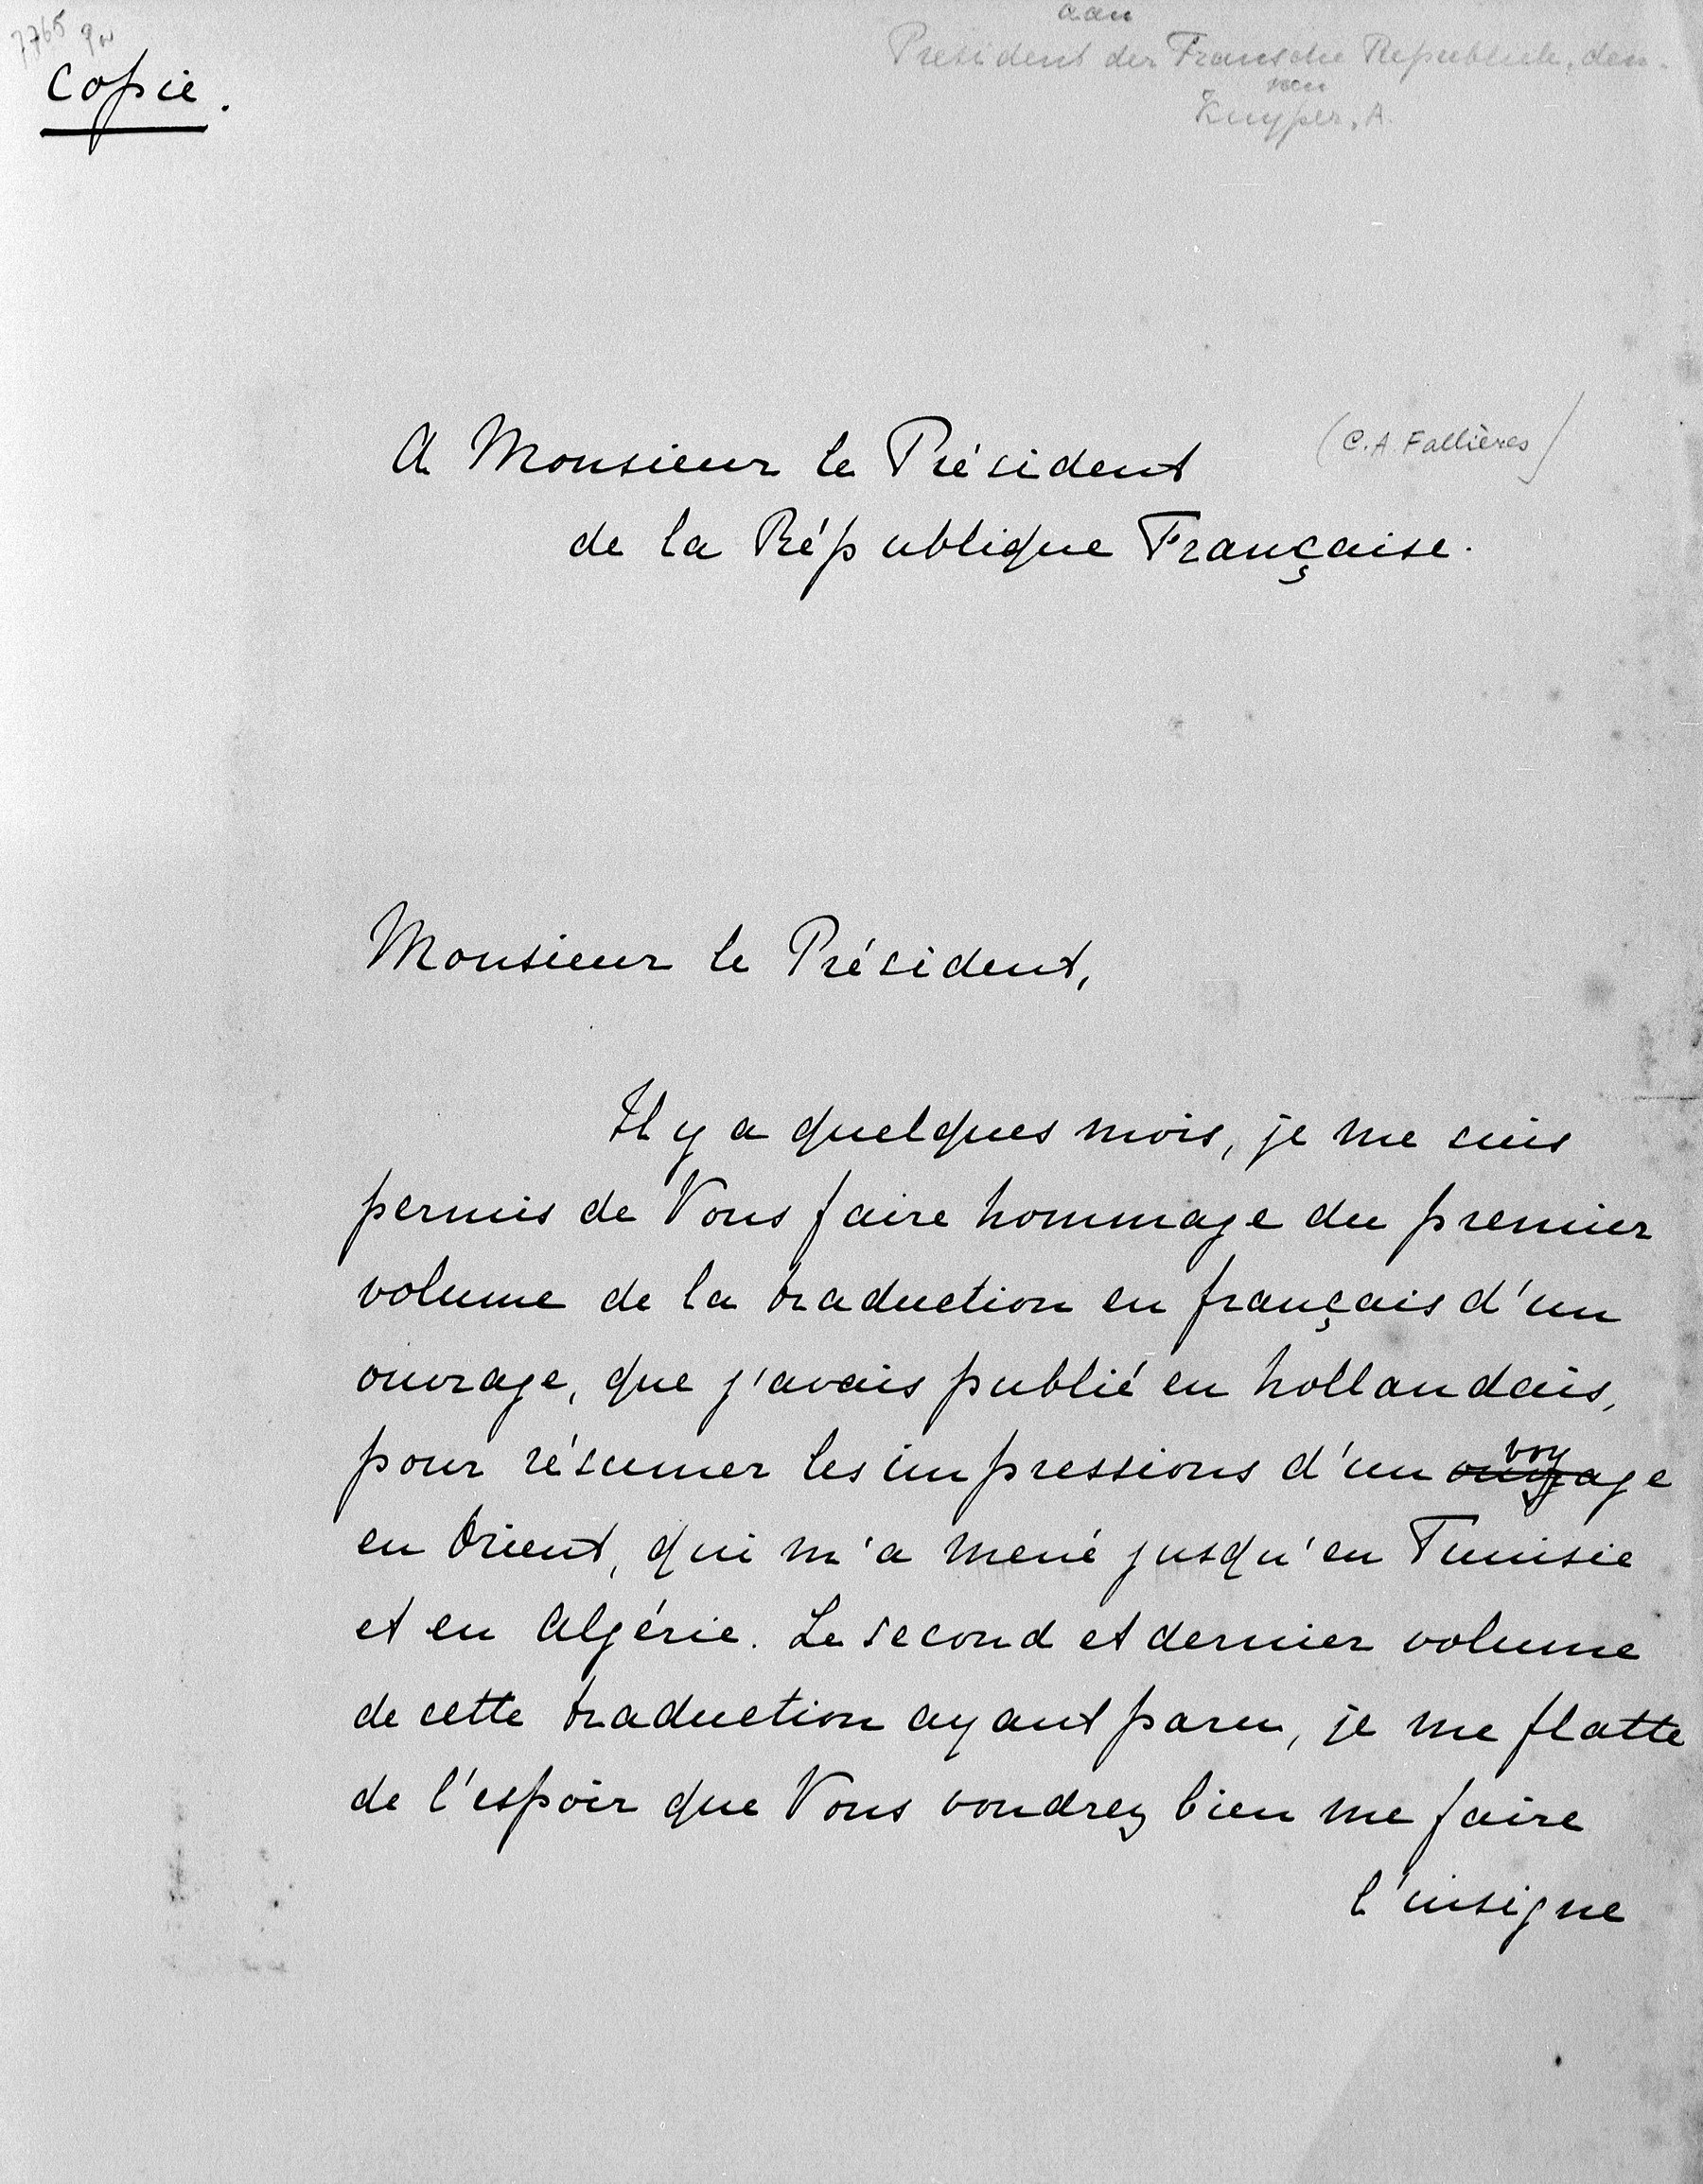 7765
Copie.
aan
President der Fransche Republiek, den.
van
Kuyper, A.
A Monsieur le Président
(C.A Fallières)
de la République Française.
Monsieur le Président,
Il y a quelques mois, je me suis
permis de Vous faire hommage du premier
volume de la traduction en français d'un
ouvrage, que j'avais publié en hollandais,
pour résumer les impressions d'un voyage
en Orient, qui m'a mené jusqu'en Tunisie
et en Algérie. Le second et dernier volume
de cette traduction ayant paru, je me flatte
de l'espoir que Vous voudrez bien me faire
l'insigne